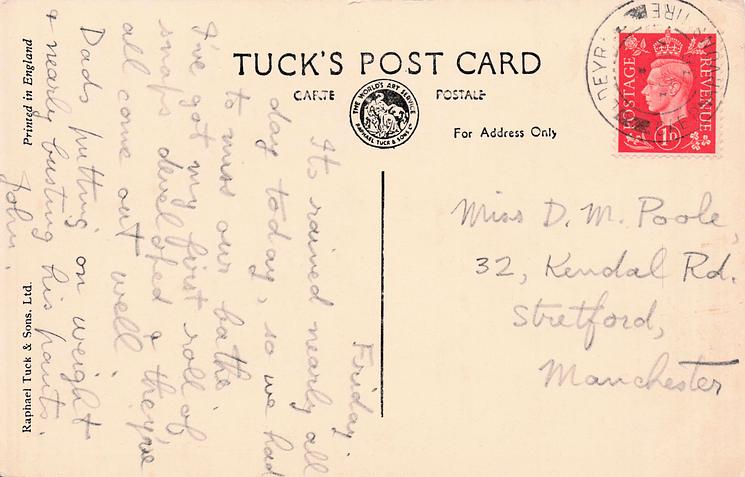 TUCK'S POST CARD
CARTE POSTALE
THE WORLD'S ART SERVICE
RAPHAEL TUCK & SONS LTD
For Address Only
POSTAGE REVENUE
1D
Printed in England
Raphael Tuck & Sons, Ltd.
Friday.
Its rained nearly all
day today, so we had
to miss our bathe.
I've got my first roll of
snaps developed & they've
all come out well.
Dads putting on weight
& nearly busting his pants.
John.
Miss D. M. Poole,
32, Kendal Rd.
Stretford,
Manchester